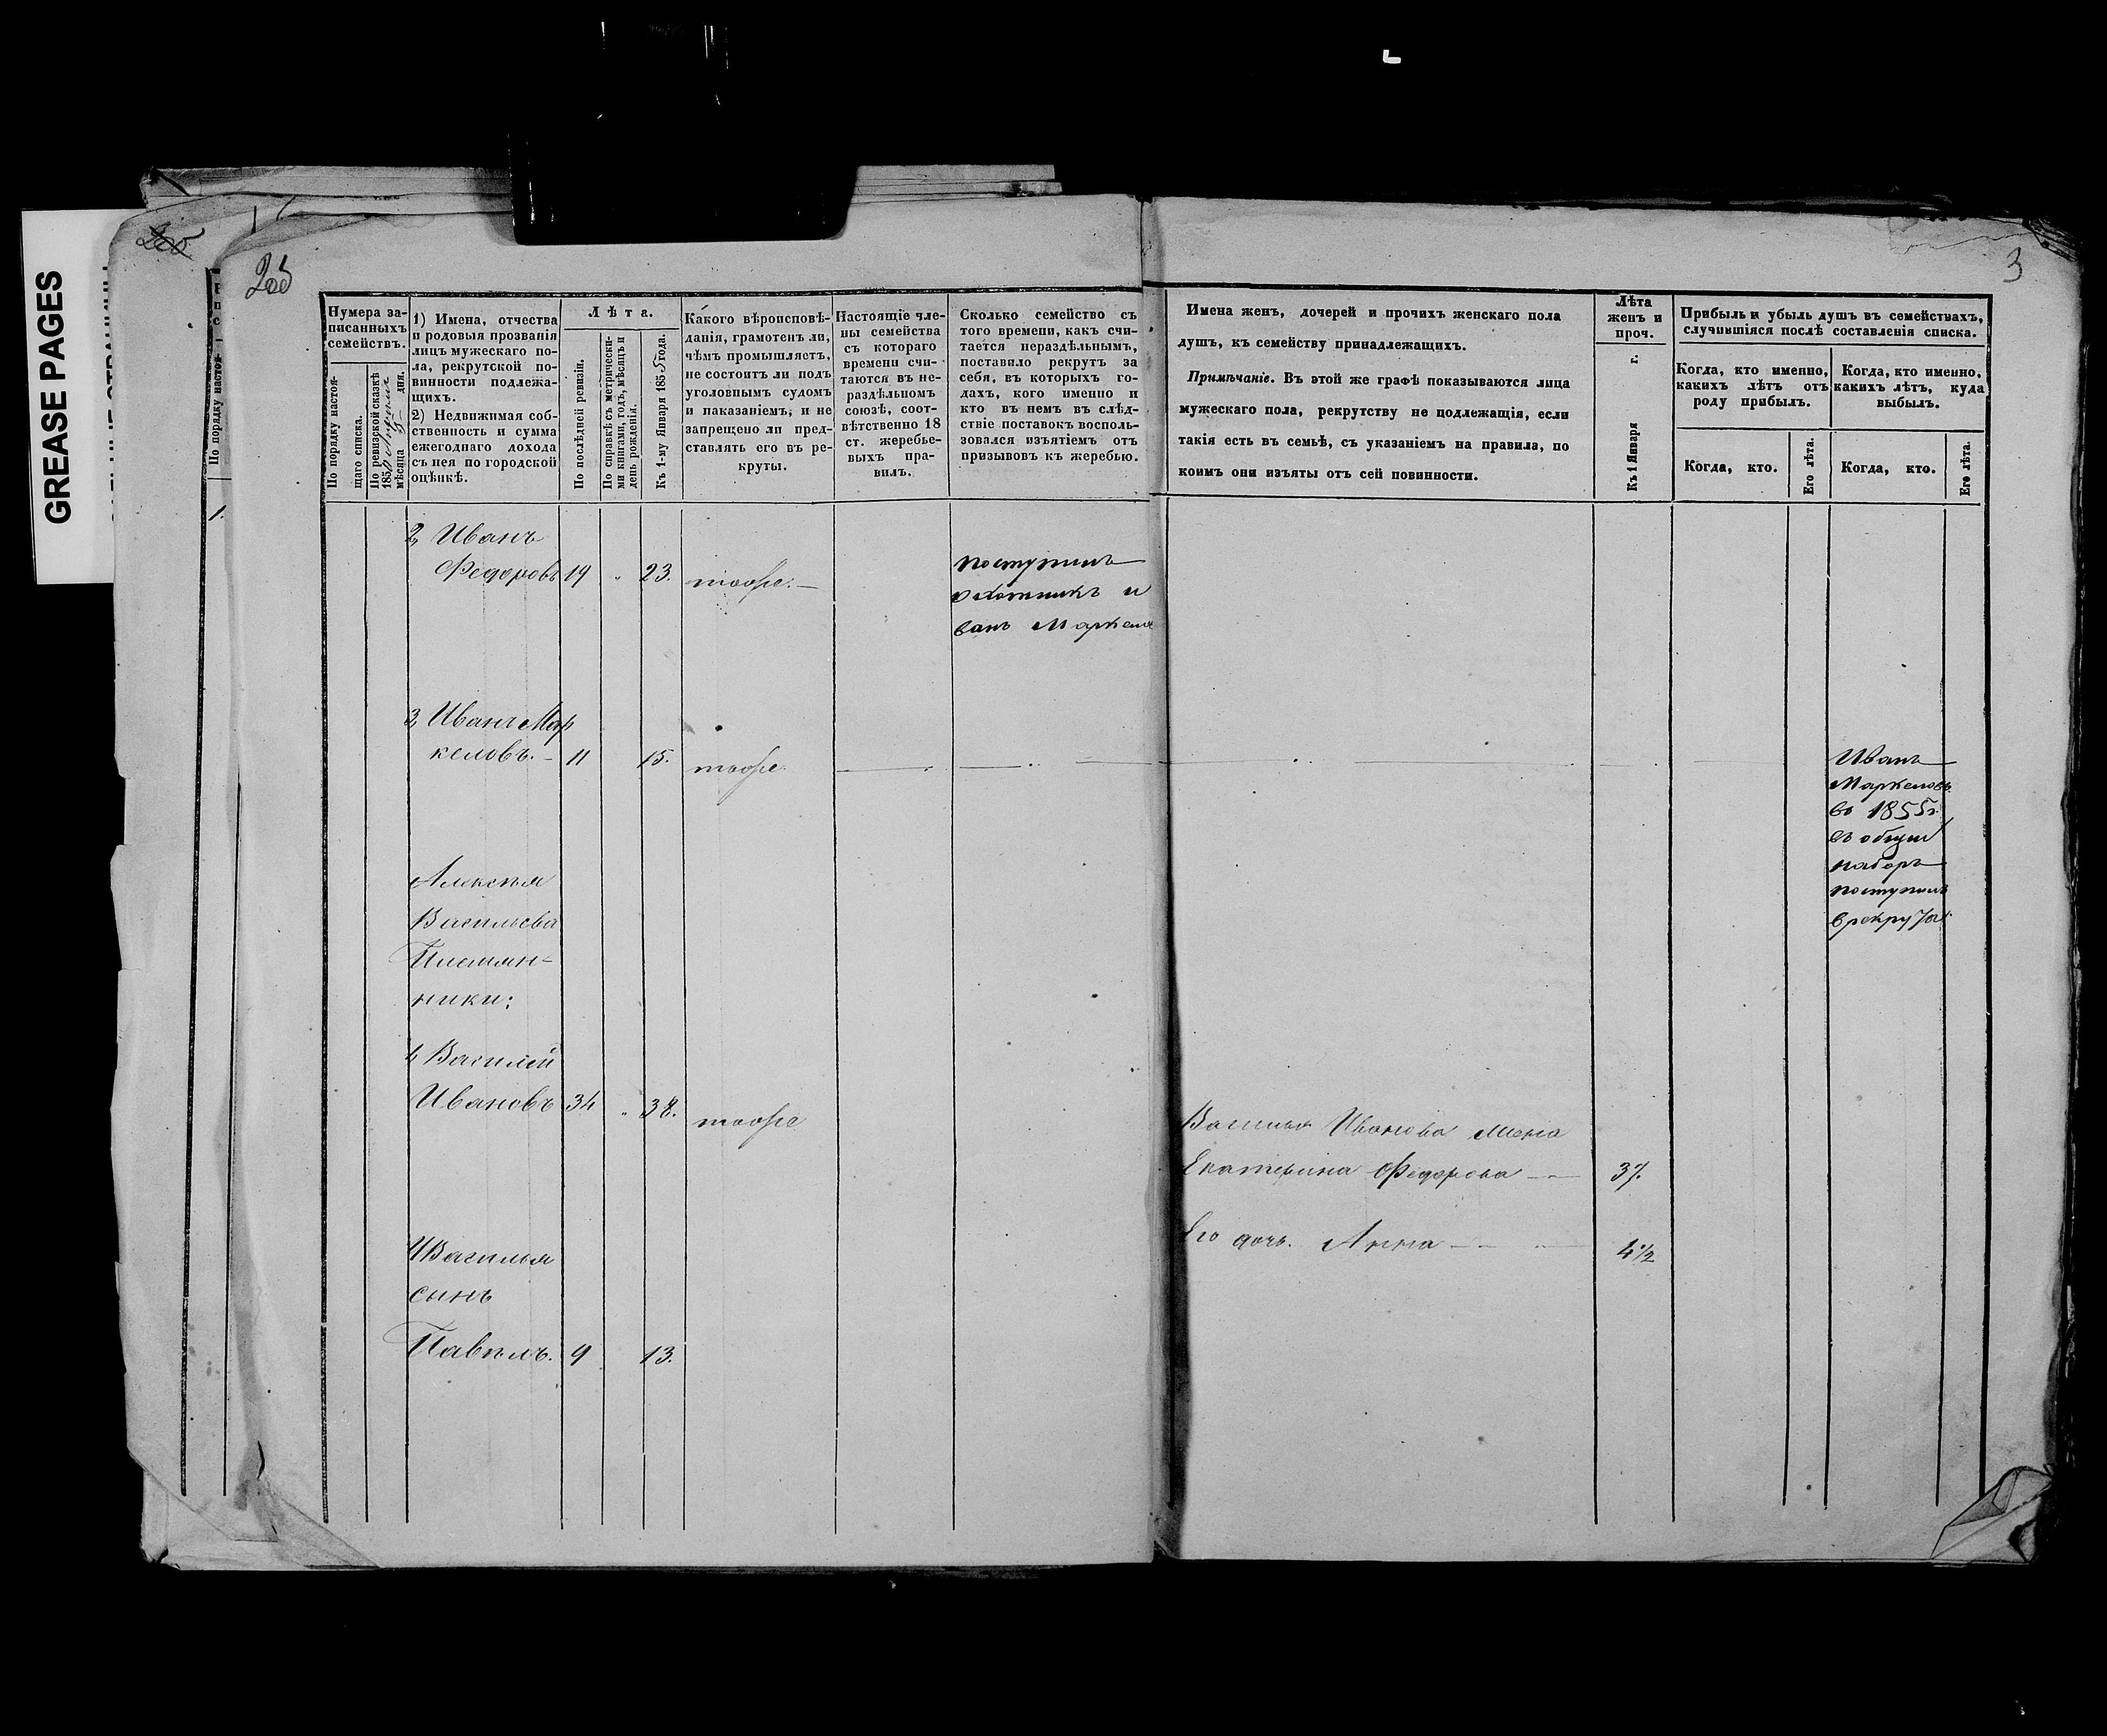 GREASE PAGES
205
3
Нумера за-
писанныхъ
семействъ.
По порядку настоя-
щаго списка.
По ревизской сказкѣ
1850
мѣсяца 5 дня.
1) Имена, отчества
и родовыя прозванія
лицъ мужескаго по-
ла, рекрутской по-
винности подлежа-
щихъ.
2) Недвижимая соб-
ственность и сумма
ежегоднаго дохода
съ нея по городской
оцѣнкѣ.
Лѣта.
По послѣдней ревизіи.
По справкѣ съ метрически-
ми книгами, годъ, мѣсяцъ и
день рожденія.
Къ 1-му Января 1855 года.
Какого вѣроисповѣ-
данія, грамотенъ ли,
чѣмъ промышляетъ,
не состоитъ ли подъ
уголовнымъ судомъ
и наказаніемъ, и не
запрещено ли пред-
ставлять его въ ре-
круты.
Настоящіе чле-
ны семейства
съ котораго
времени счи-
таются въ не-
раздѣльномъ
союзѣ, соот-
вѣтственно 18
ст. жеребье-
выхъ пра-
вилъ.
Сколько семейство съ
того времени, какъ счи-
тается нераздѣльнымъ,
поставило рекрутъ за
себя, въ которыхъ го-
дахъ, кого именно и
кто въ немъ въ слѣд-
ствіе поставокъ восполь-
зовался изъятіемъ отъ
призывовъ къ жеребью.
Имена женъ, дочерей и прочихъ женскаго пола
душъ, къ семейству принадлежащихъ.
Примѣчаніе. Въ этой же графѣ показываются лица
мужескаго пола, рекрутству не подлежащія, если
такія есть въ семьѣ, съ указаніемъ на правила, по
коимъ они изъяты отъ сей повинности.
Лѣта
женъ и
проч.
Къ 1 Января г.
Прибыль и убыль душъ въ семействахъ,
случившіяся послѣ составленія списка.
Когда, кто именно,
какихъ лѣтъ отъ
роду прибылъ.
Когда, кто именно,
какихъ лѣтъ, куда
выбылъ.
Когда, кто.
Его лѣта.
Когда, кто.
Его лѣта.
2, Иванъ
Федоровъ 19 „ 23. тоже.
поступилъ
охотникъ и
ванъ Маркело
3, Иванъ Мар
келовъ. 11 15. тоже
Иванъ
Маркеловъ
во 1855 г.
въ общій
наборъ
поступилъ
в рекруты
Алексѣя
Васильева
Племян-
ники:
1, Василей
Ивановъ 34 „ 38. тоже
Василья Иванова жена
Екатерина Федорова 37.
Его дочь. Анна 4 1/2
У Василья
сынъ
Павелъ. 9 13.